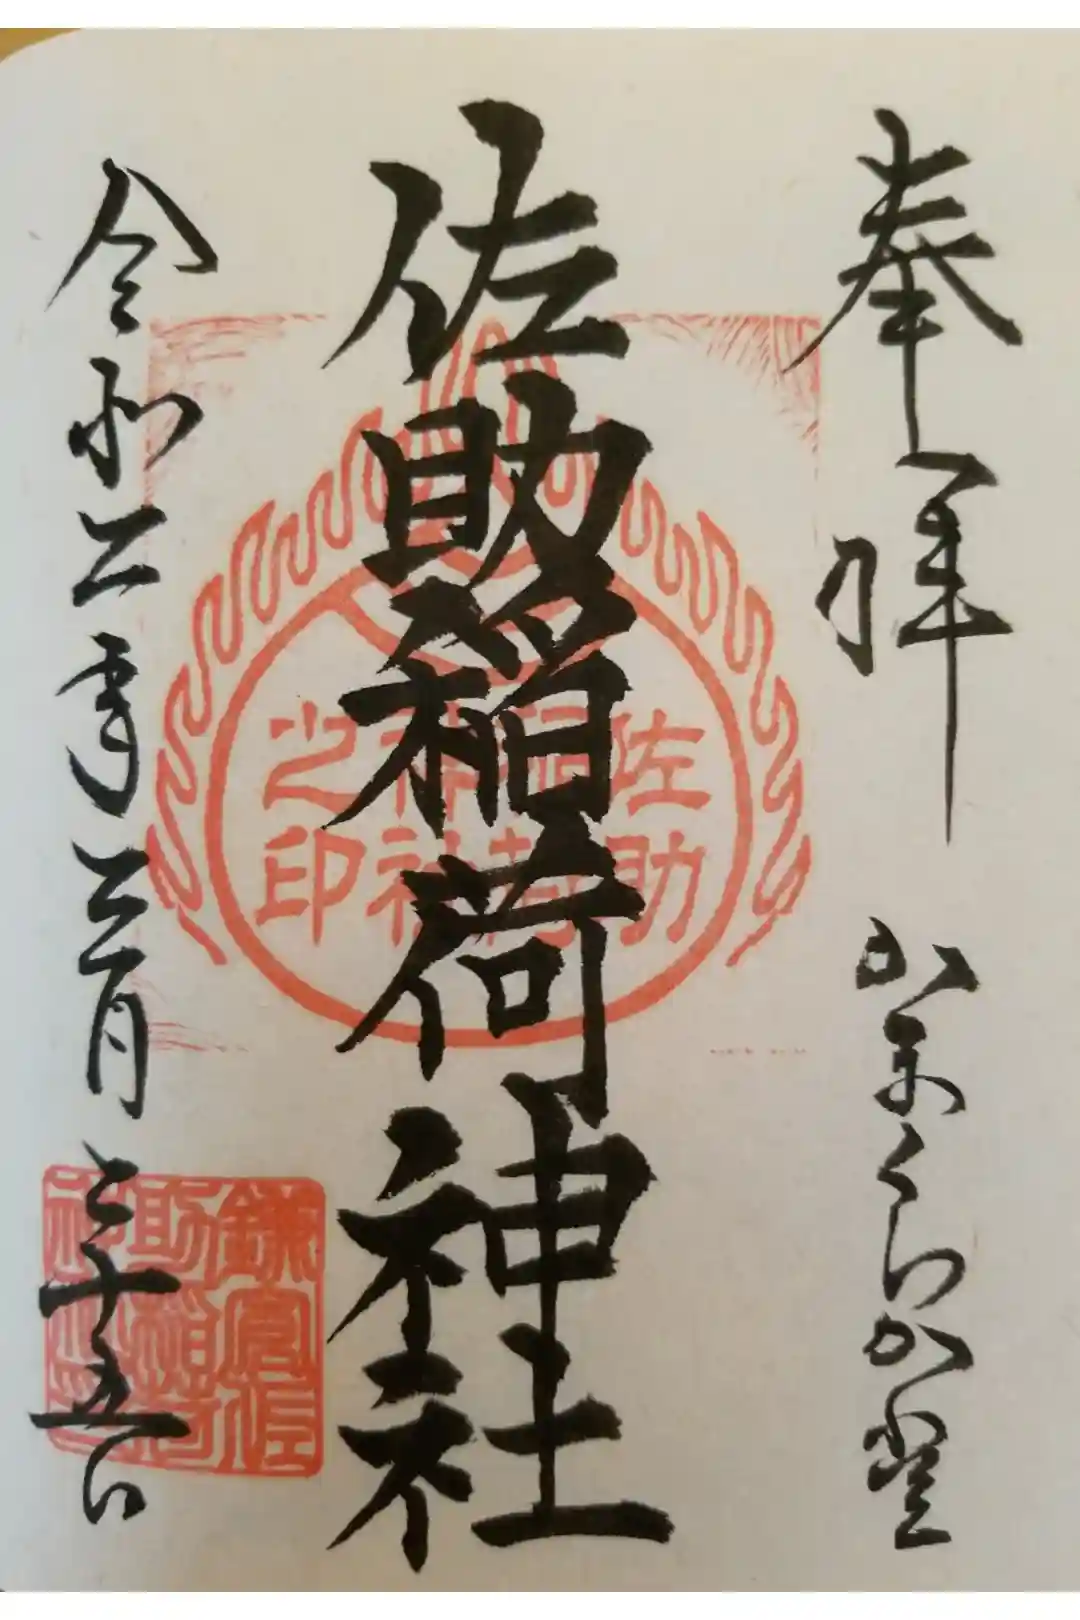 奉拝　かまくら
佐助稲荷神社
令和二年三月二十五日
佐助
稲荷
神社
之印
鎌倉佐
助稲荷